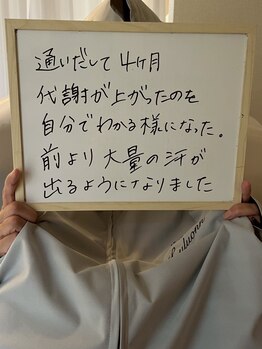 通いだして4ヶ月
代謝が上がったのを
自分でわかる様になった。
前より大量の汗が
出るようになりました